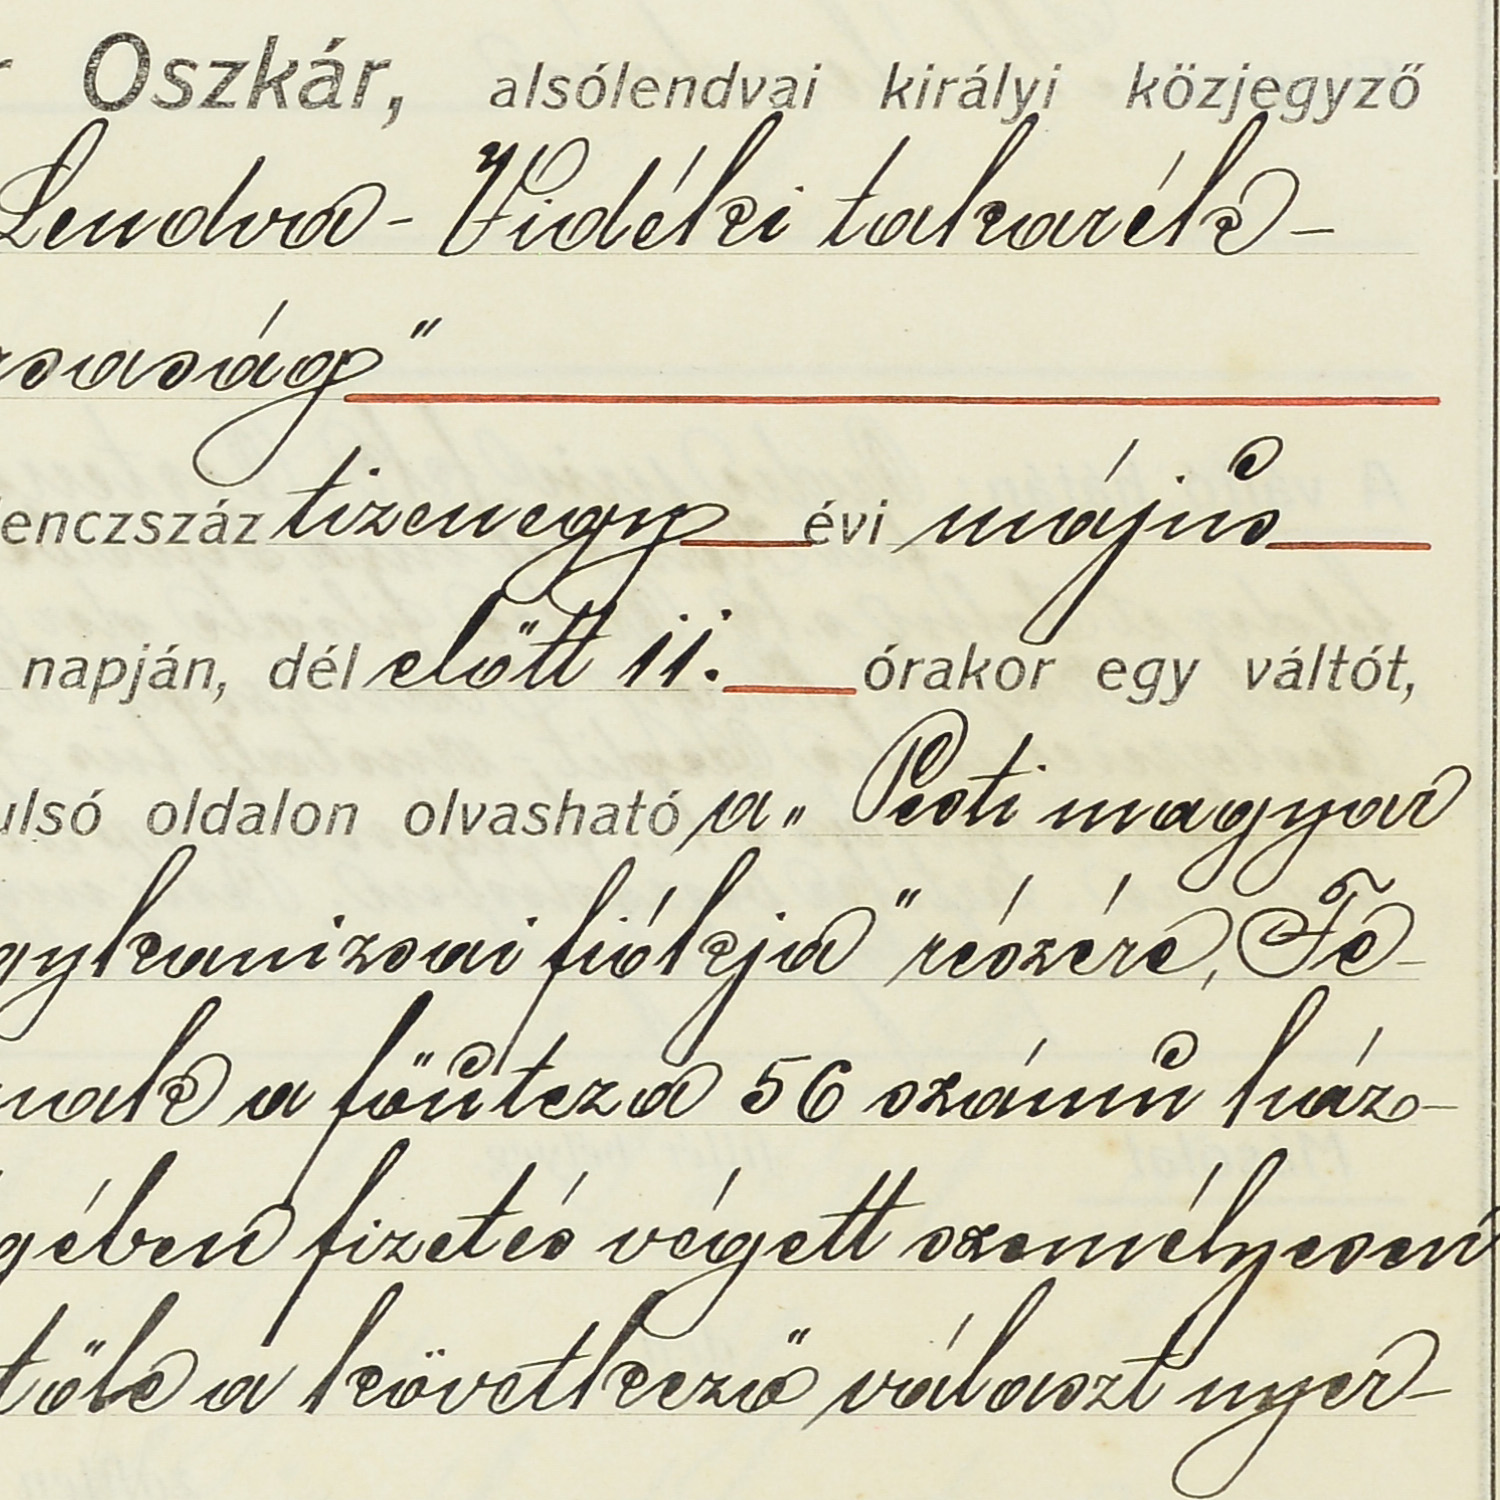 Oszkár, alsólendvai királyi közjegyző
Lendva- Vidéki takarék-
rsaság"
lenczszáz tizenegy évi május
napján, dél előtt 11. órakor egy váltót,
ulsó oldalon olvasható a „Pesti magyar
gykanizsai fiókja" részére, Fe-
nak a főútcza 56 számú ház-
gében fizetés végett személyesen
tőle a következő választ nyer-